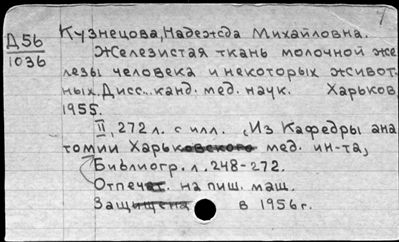 Д 56
1036
Кузнецова, Надежда Михайловна.
Железистая ткань молочной же
лезы человека и некоторых живот-
ных. Дисс... канд. мед. наук. Харьков,
1955.
II, 272 л. с илл. (Из Кафедры ана
томии Харьковского мед. ин-та)
Библиогр. л. 248-272.
Отпечат. на пиш. маш.
Защищена в 1956г.